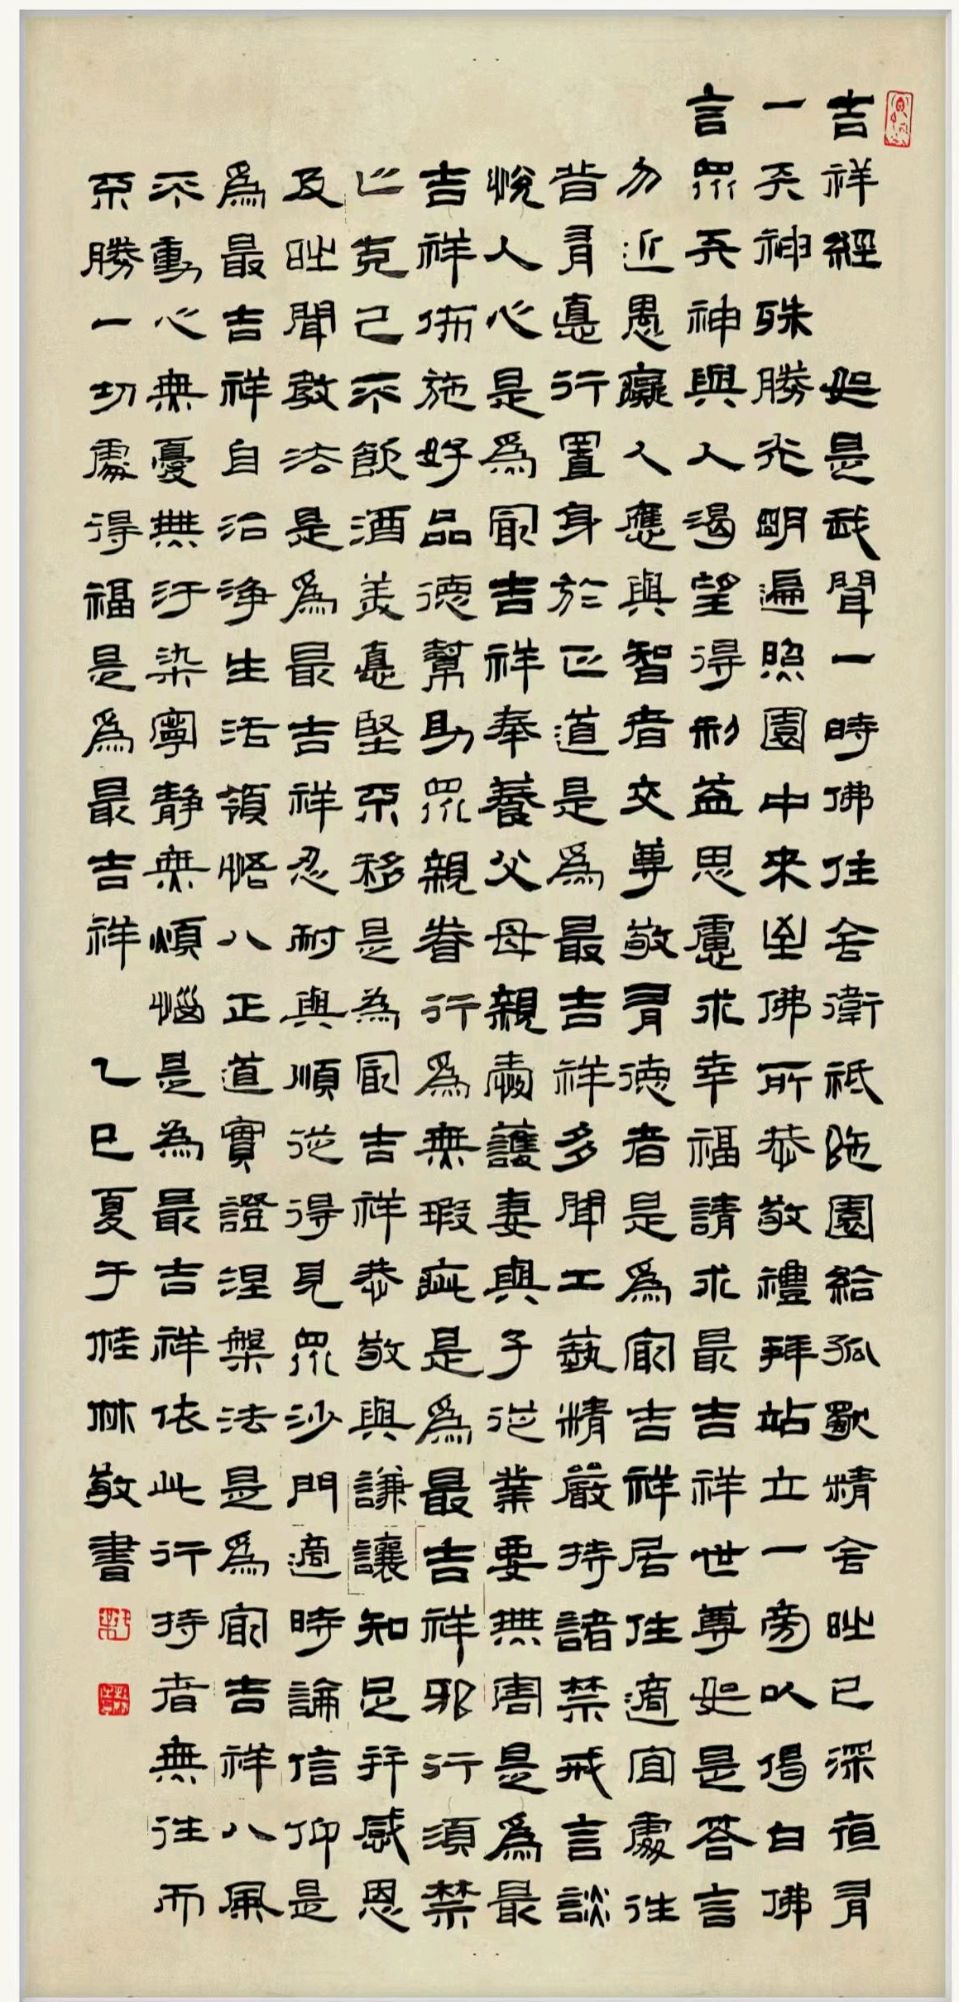 吉祥經 如是我聞一時佛住舍衛祇陀園給孤獨精舍時已深夜有
一天神殊勝光明遍照園中來到佛所恭敬禮拜站立一旁以偈白佛
言眾天神與人渴望得利益思慮求幸福請求最吉祥世尊如是答言
勿近愚癡人應與智者交尊敬有德者是為最吉祥居住適宜處往
昔有德行置身於正道是為最吉祥多聞工藝精嚴持諸禁戒言談
悅人心是為最吉祥奉養父母親愛護妻與子從業要無害是為最
吉祥佈施好品德幫助眾親眷行為無瑕疵是為最吉祥邪行須禁
止克己不飲酒美德堅不移是為最吉祥恭敬與謙讓知足并感恩
及時聞教法是為最吉祥忍耐與順從得見眾沙門適時論信仰是
為最吉祥自治淨生活領悟八正道實證涅槃法是為最吉祥八風
不動心無憂無污染寧靜無煩惱是為最吉祥依此行持者無往而
不勝一切處得福是為最吉祥 乙巳夏于桂林敬書